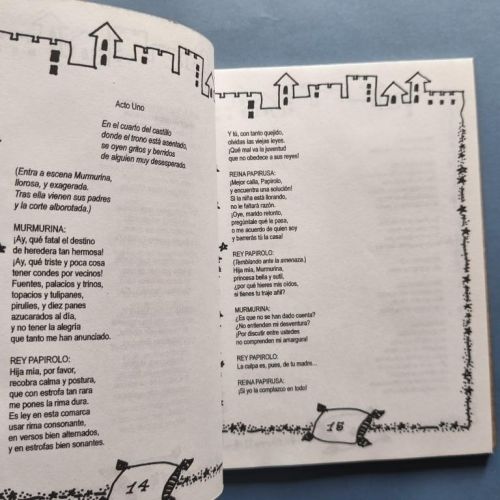 Acto Uno
En el cuarto del castillo
donde el trono está asentado,
se oyen gritos y berridos
de alguien muy desesperado.
(Entra a escena Murmurina,
llorosa, y exagerada.
Tras ella vienen sus padres
y la corte alborotada.)
MURMURINA:
¡Ay, qué fatal el destino
de heredera tan hermosa!
¡Ay, qué triste y poca cosa
tener condes por vecinos!
Fuentes, palacios y trinos,
topacios y tulipanes,
pirulíes, y diez panes
azucarados al día,
y no tener la alegría
que tanto me han anunciado.
REY PAPIROLO:
Hija mía, por favor,
recobra calma y postura,
que con estrofa tan rara
me pones la rima dura.
Es ley en esta comarca
usar rima consonante,
en versos bien alternados,
y en estrofas bien sonantes.
14
Y tú, con tanto quejido,
olvidas las viejas leyes.
¡Qué mal va la juventud
que no obedece a sus reyes!
REINA PAPIRUSA:
¡Mejor calla, Papirolo,
y encuentra una solución!
Si la niña está llorando,
no le faltará razón.
¡Oye, marido retonto,
pregúntale qué le pasa,
o me acuerdo de quien soy
y barrerás tú la casa!
REY PAPIROLO:
(Temblando ante la amenaza.)
Hija mía, Murmurina,
princesa bella y sutil,
¿por qué hieres mis oídos,
si tienes tu traje añil?
MURMURINA:
¿Es que no se han dado cuenta?
¿No entienden mi desventura?
¡Por discutir entre ustedes
no comprenden mi amargura!
REY PAPIROLO:
La culpa es, pues, de tu madre...
REINA PAPIRUSA:
¡Si yo la complazco en todo!
15